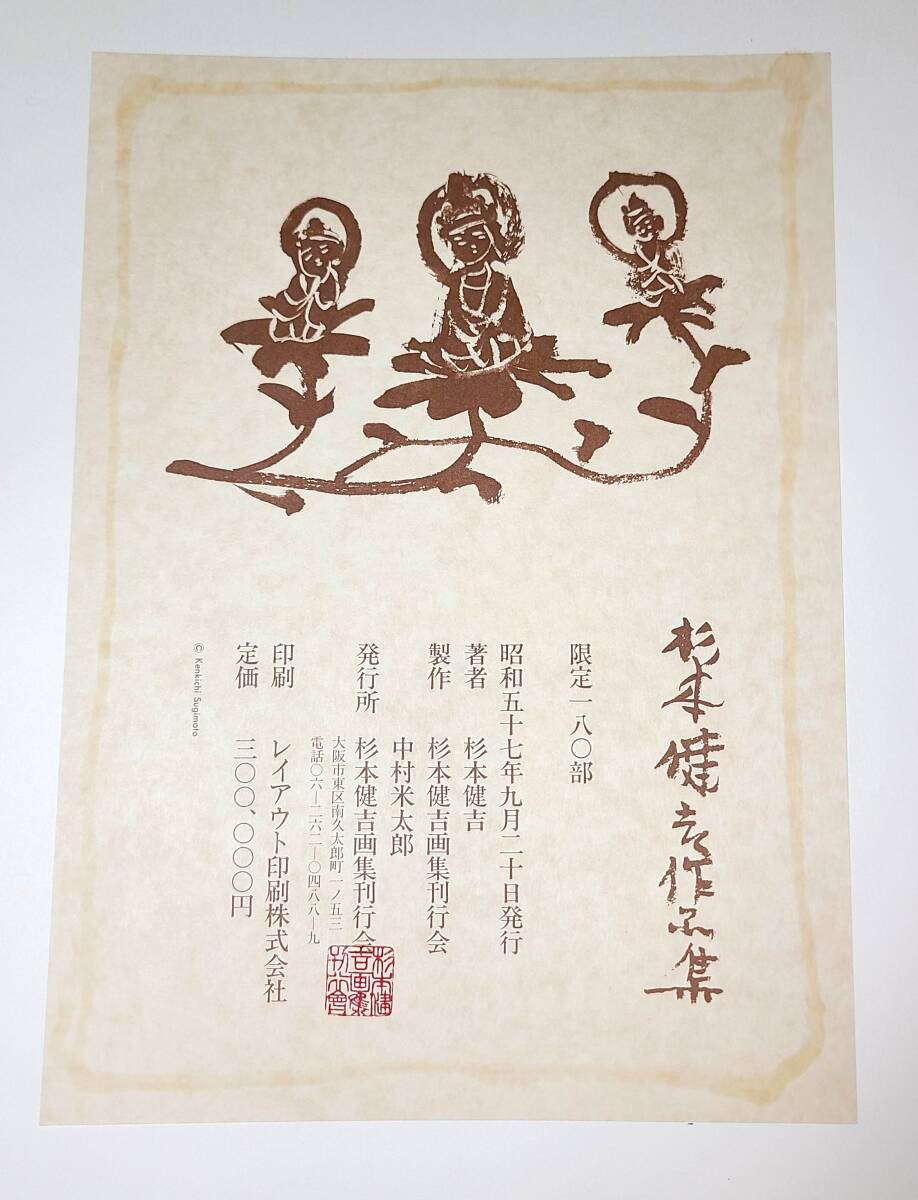 杉本健吉作品集
限定一八〇部
昭和五十七年九月二十日発行
著者 杉本健吉
製作 杉本健吉画集刊行会
中村米太郎
発行所 杉本健吉画集刊行会
大阪市東区南久太郎町一ノ五三
電話〇六―二六二―〇四八八―九
印刷 レイアウト印刷株式会社
定価 三〇〇、〇〇〇円
© Kenkichi Sugimoto
杉本健
吉画集
刊行會